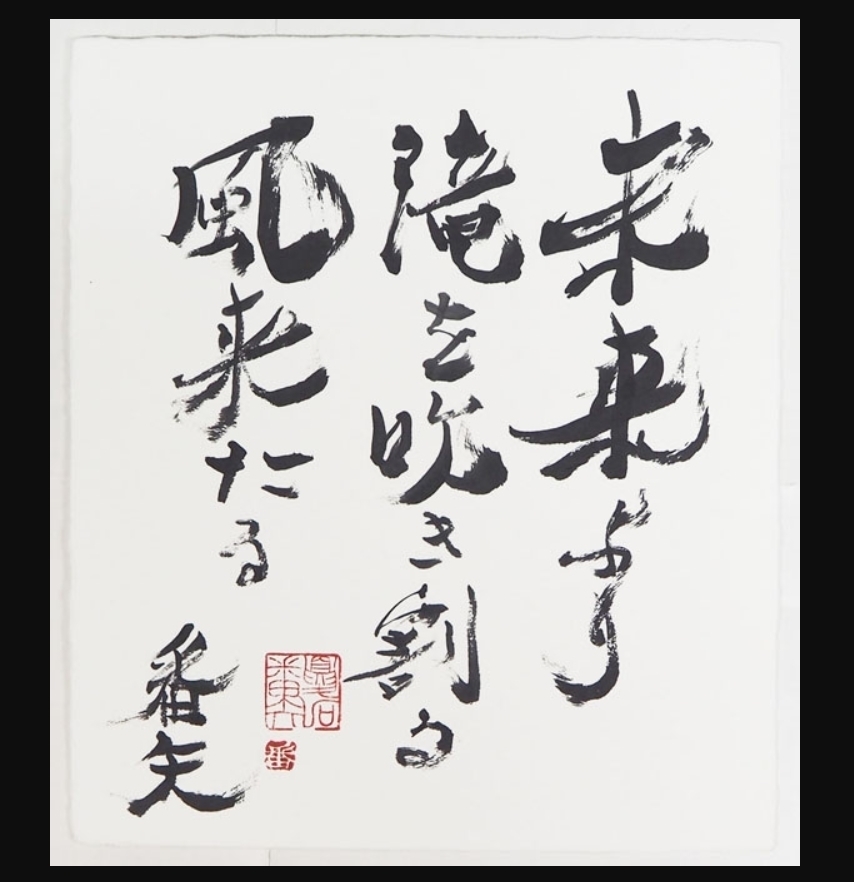 未来より
滝を吹き割る
風来たる
番矢